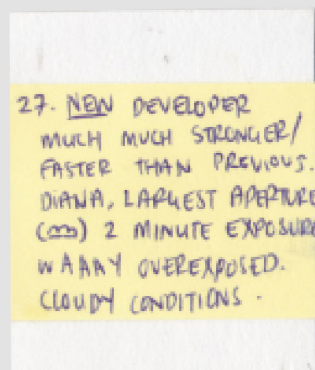 27. NEW DEVELOPER
MUCH MUCH STRONGER/
FASTER THAN PREVIOUS.
DIANA, LARGEST APERTURE
() 2 MINUTE EXPOSURE
WAAAY OVEREXPOSED.
CLOUDY CONDITIONS.